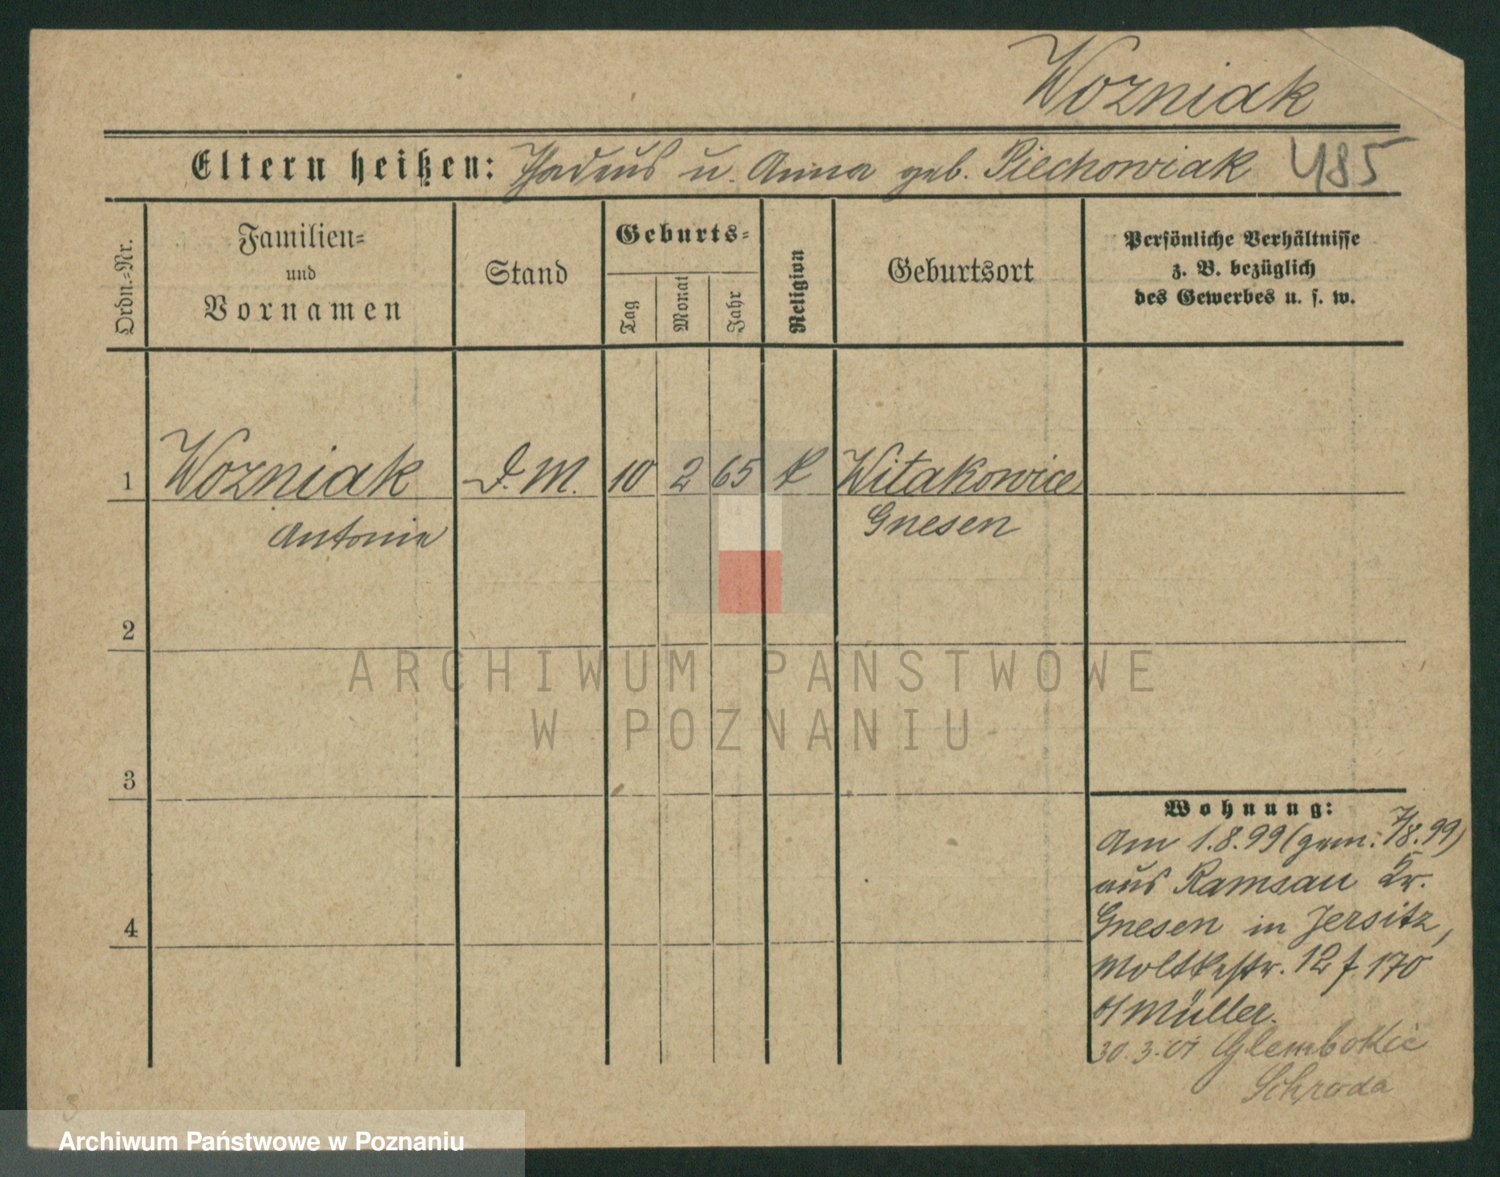 Wozniak
Eltern heißen: Thadeus u. Anna geb. Piechowiak 485
Ordn.=Nr.
Familien=
und
Vornamen
Stand
Geburts=
Tag
Monat
Jahr
Religion
Geburtsort
Persönliche Verhältnisse
z. B. bezüglich
des Gewerbes u. s. w.
1 Wozniak D. M. 10 2 65 k Witakowice
Antonie Gnesen
2
3
4
Wohnung:
Am 1.8.99 (gem: 7/8.99)
aus Ramsau Kr.
Gnesen in Jersitz,
Moltkestr. 12 f. 170
b/ Müller.
30.3.01 Glembokie
Schroda
ARCHIWUM PAŃSTWOWE
W POZNANIU
Archiwum Państwowe w Poznaniu